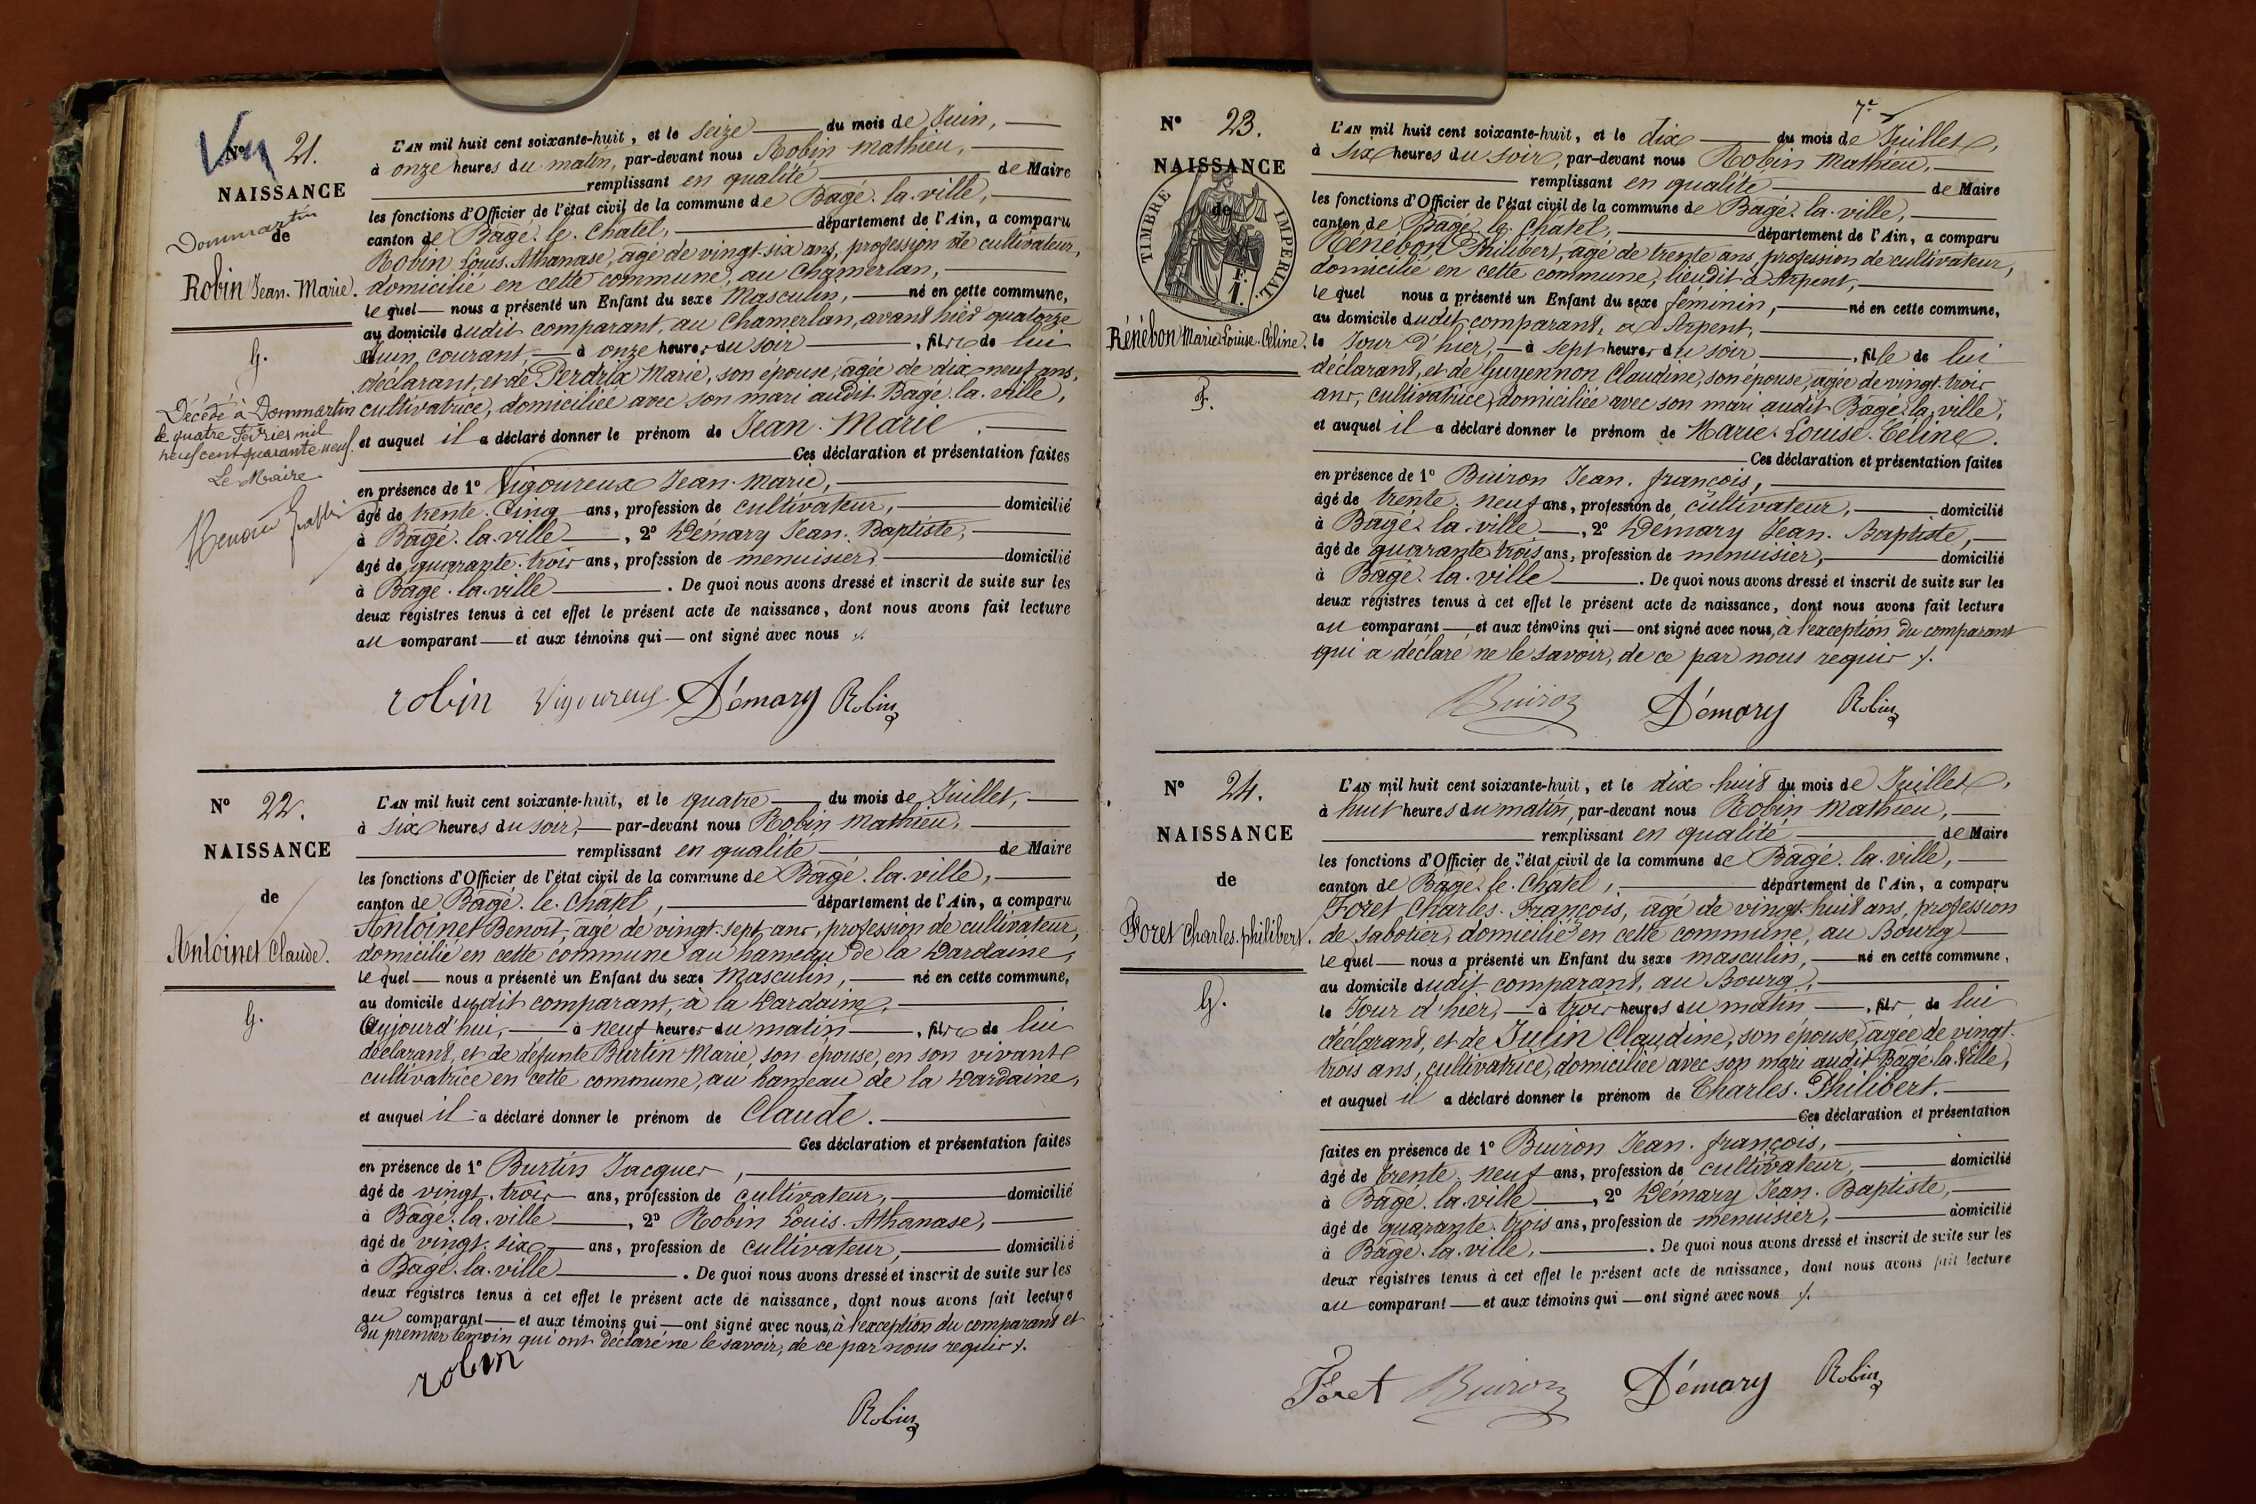 Vu
N° 21.
NAISSANCE
Dommartin
de
Robin Jean-Marie.
G.
Décédé à Dommartin
le quatre Février mil
neuf cent quarante neuf.
Le Maire
L'AN mil huit cent soixante-huit, et le seize du mois de Juin,
à onze heures du matin, par-devant nous Robin Mathieu,
remplissant en qualité de Maire
les fonctions d'Officier de l'état civil de la commune de Bagé-la-ville,
canton de Bagé-le-Châtel, département de l'Ain, a comparu
Robin Louis-Athanase, âgé de vingt-six ans, profession de cultivateur,
domicilié en cette commune, au Chamerlan,
lequel nous a présenté un Enfant du sexe Masculin, né en cette commune,
au domicile dudit comparant, au Chamerlan, avant hier quatorze
Juin, courant, à onze heures du soir, fils de lui
déclarant, et de Perdrix Marie, son épouse, âgée de dix neuf ans,
cultivatrice, domiciliée avec son mari audit Bagé-la-ville,
et auquel il a déclaré donner le prénom de Jean-Marie.
Ces déclaration et présentation faites
en présence de 1° Vigoureux Jean-Marie,
âgé de trente-Cinq ans, profession de cultivateur, domicilié
à Bagé-la-ville, 2° Démary Jean-Baptiste,
âgé de quarante-trois ans, profession de menuisier, domicilié
à Bagé-la-ville. De quoi nous avons dressé et inscrit de suite sur les
deux registres tenus à cet effet le présent acte de naissance, dont nous avons fait lecture
au comparant et aux témoins qui ont signé avec nous ./.
robin Vigoureux Démary Robin
N° 22.
NAISSANCE
de
Antoinet Claude.
G.
L'AN mil huit cent soixante-huit, et le quatre du mois de Juillet,
à six heures du soir, par-devant nous Robin Mathieu,
remplissant en qualité de Maire
les fonctions d'Officier de l'état civil de la commune de Bagé-la-ville,
canton de Bagé-le-Châtel, département de l'Ain, a comparu
Antoinet Benoît, âgé de vingt-sept ans, profession de cultivateur,
domicilié en cette commune au hameau de la Dardaine,
lequel nous a présenté un Enfant du sexe Masculin, né en cette commune,
au domicile dudit comparant, à la Dardaine,
Aujourd'hui, à neuf heures du matin, fils de lui
déclarant, et de défunte Burtin Marie, son épouse, en son vivant
cultivatrice en cette commune, au hameau de la Dardaine,
et auquel il a déclaré donner le prénom de Claude.
Ces déclaration et présentation faites
en présence de 1° Burtin Jacques,
âgé de vingt-trois ans, profession de cultivateur, domicilié
à Bagé-la-ville, 2° Robin Louis-Athanase,
âgé de vingt-six ans, profession de cultivateur, domicilié
à Bagé-la-ville. De quoi nous avons dressé et inscrit de suite sur les
deux registres tenus à cet effet le présent acte de naissance, dont nous avons fait lecture
au comparant et aux témoins qui ont signé avec nous, à l'exception du comparant et
du premier témoin qui ont déclaré ne le savoir, de ce par nous requis ./.
robin
Robin
7e
N° 23.
NAISSANCE
de
TIMBRE IMPÉRIAL
F.
1.
Rénébon Marie-Louise-Céline.
F.
L'AN mil huit cent soixante-huit, et le dix du mois de Juillet,
à six heures du soir, par-devant nous Robin Mathieu,
remplissant en qualité de Maire
les fonctions d'Officier de l'état civil de la commune de Bagé-la-ville,
canton de Bagé-le-Châtel, département de l'Ain, a comparu
Rénébon Philibert, âgé de trente ans, profession de cultivateur,
domicilié en cette commune, lieudit à Arpent,
lequel nous a présenté un Enfant du sexe féminin, né en cette commune,
au domicile dudit comparant, à Arpent,
le Jour d'hier, à sept heures du soir, fille de lui
déclarant, et de Guyennon Claudine, son épouse, âgée de vingt-trois
ans, cultivatrice, domiciliée avec son mari audit Bagé-la-ville,
et auquel il a déclaré donner le prénom de Marie-Louise-Céline.
Ces déclaration et présentation faites
en présence de 1° Buiron Jean-françois,
âgé de trente-neuf ans, profession de cultivateur, domicilié
à Bagé-la-ville, 2° Démary Jean-Baptiste,
âgé de quarante trois ans, profession de menuisier, domicilié
à Bagé-la-ville. De quoi nous avons dressé et inscrit de suite sur les
deux registres tenus à cet effet le présent acte de naissance, dont nous avons fait lecture
au comparant et aux témoins qui ont signé avec nous, à l'exception du comparant
qui a déclaré ne le savoir, de ce par nous requis ./.
Buiron Démary Robin
N° 24.
NAISSANCE
de
Foret Charles-philibert.
G.
L'AN mil huit cent soixante-huit, et le dix-huit du mois de Juillet,
à huit heures du matin, par-devant nous Robin Mathieu,
remplissant en qualité de Maire
les fonctions d'Officier de l'état civil de la commune de Bagé-la-ville,
canton de Bagé-le-Châtel, département de l'Ain, a comparu
Foret Charles-François, âgé de vingt-huit ans, profession
de sabotier, domicilié en cette commune, au Bourg
lequel nous a présenté un Enfant du sexe masculin, né en cette commune,
au domicile dudit comparant, au Bourg,
le Jour d'hier, à trois heures du matin, fils de lui
déclarant, et de Julin Claudine, son épouse, âgée de vingt-
trois ans, cultivatrice, domiciliée avec son mari audit Bagé-la-Ville,
et auquel il a déclaré donner le prénom de Charles-Philibert.
Ces déclaration et présentation
faites en présence de 1° Buiron Jean-françois,
âgé de trente-neuf ans, profession de cultivateur, domicilié
à Bagé-la-ville, 2° Démary Jean-Baptiste,
âgé de quarante-trois ans, profession de menuisier, domicilié
à Bagé-la-ville. De quoi nous avons dressé et inscrit de suite sur les
deux registres tenus à cet effet le présent acte de naissance, dont nous avons fait lecture
au comparant et aux témoins qui ont signé avec nous ./.
Foret Buiron Démary Robin